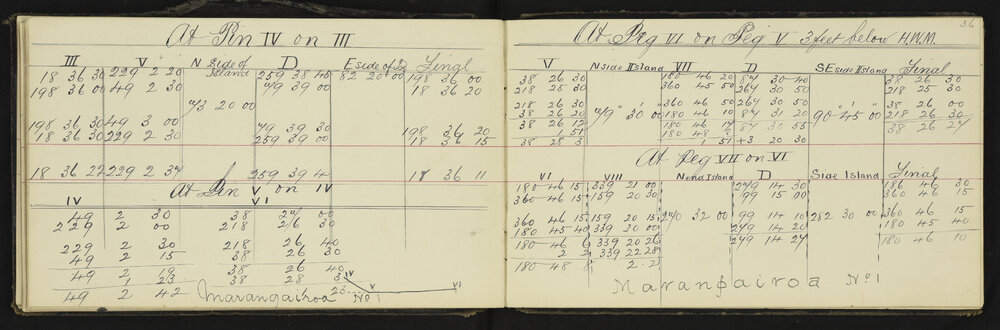 At Pin IV on III
III V N Side of Island D E side of Final
18 36 30 229 2 20 259 38 45 82 20 00 198 36 00
198 36 00 49 2 30 79 39 00 18 36 20
43 20 00
198 36 30 49 3 00 79 39 30 198 36 20
18 36 30 229 2 30 259 39 00 18 36 15
18 36 22 229 2 34 259 39 4 18 36 11
At Pin V on IV
IV VI
49 2 30 38 27 00
229 2 00 218 26 30
229 2 30 218 26 40
49 2 15 38 26 30
49 2 19 38 26 40
1 23 38 28 3
49 2 42
Marangairoa No 1
IV V VI
36
At Peg VI on Peg V 3 feet below H.W.M.
V N Side II Island VII D SE side II Island Final
38 26 30 180 46 20 84 30 40 38 26 30
218 25 30 360 45 50 264 30 50 218 25 30
218 26 30 360 46 50 264 30 50 38 26 00
38 26 20 49 30 00 180 46 10 84 31 20 90 45 00 218 26 30
38 26 12 180 46 17 84 30 55 38 26 27
1 51 180 48 8
38 28 3 1 51 +3 20 30
At Peg VII on VI
VI VIII N end Island D Side Island Final
180 46 15 339 21 00 279 14 30 186 46 30
360 46 15 159 20 30 99 15 00 360 46 15
360 46 15 159 20 15 240 32 00 99 14 10 252 30 00 360 46 15
180 45 40 339 20 00 279 14 20 180 45 40
180 46 6 339 20 26 279 14 27 180 46 10
2 2 339 22 28
180 48 8 2 2
Marangairoa No 1